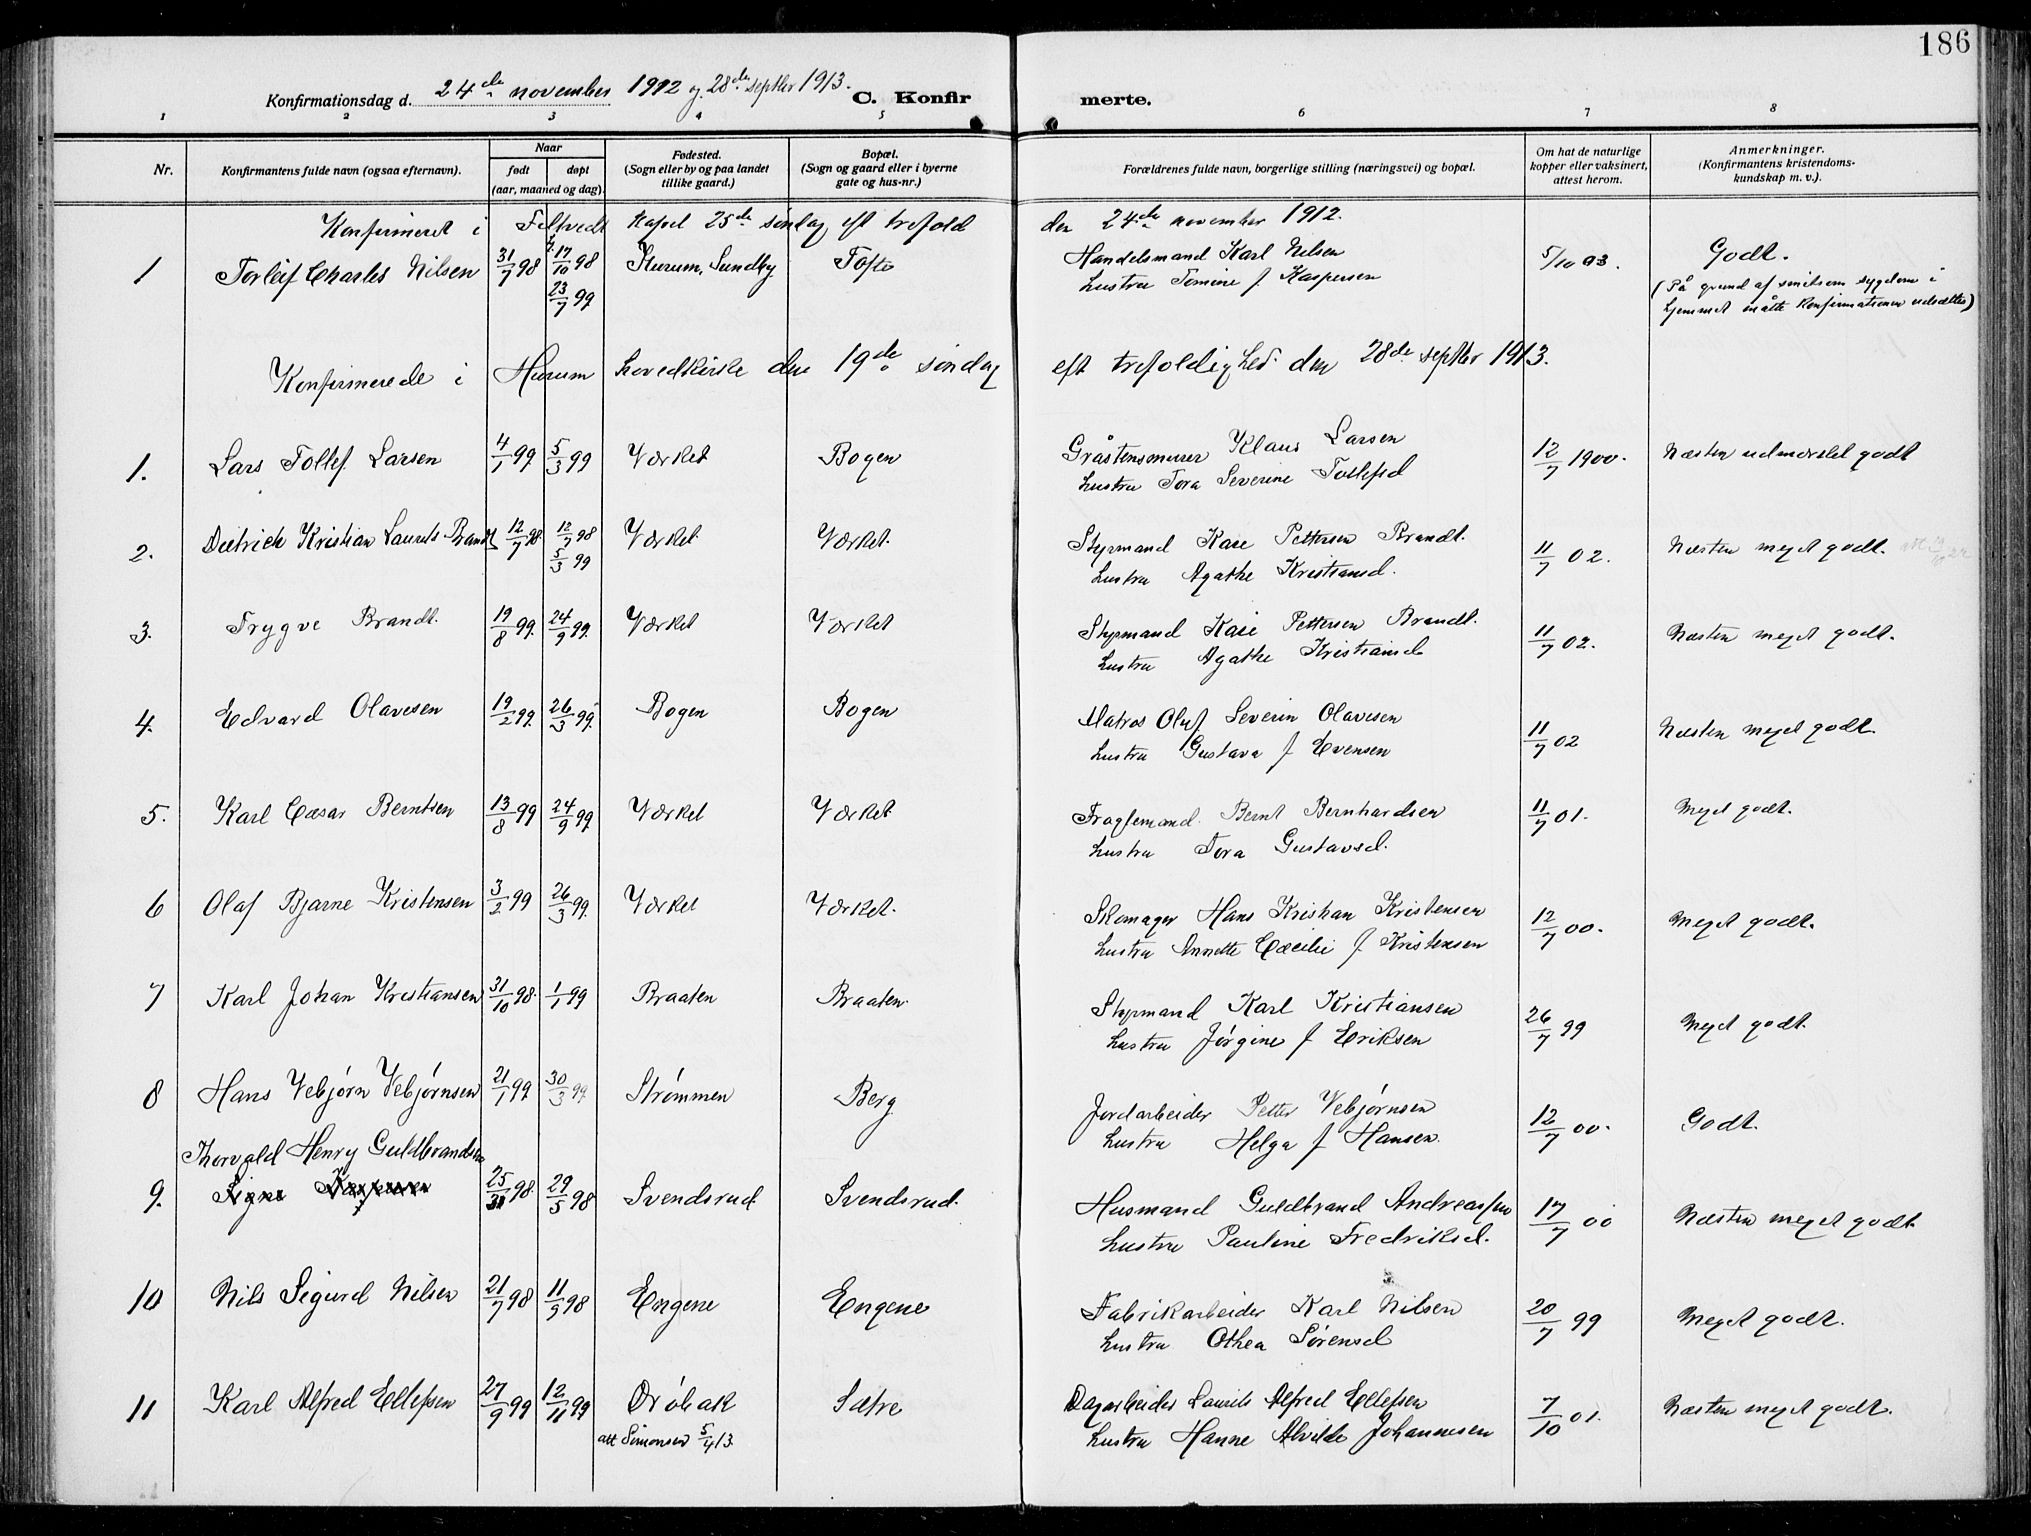 186
Konfirmationsdag d. 24de november 1912 og 28de septbr 1913.
C. Konfirmerte.
1 2 3 4 5 6 7 8
Nr. Konfirmantens fulde navn (ogsaa efternavn). Naar født døpt (aar, maaned og dag). Fødested. (Sogn eller by og paa landet tillike gaard.) Bopæl. (Sogn og gaard eller i byerne gate og hus-nr.) Forældrenes fulde navn, borgerlige stilling (næringsvei) og bopæl. Om hat de naturlige kopper eller vaksinert, attest herom. Anmerkninger. (Konfirmantens kristendoms-kundskap m. v.).
Konfirmeret i Filtvedt kapel 25de søndag eft trefold den 24de november 1912.
1 Torleif Charles Nilsen 31/7 98 17/10 98 Hurum, Sundby Tofte Handelsmand Karl Nilsen 5/10 03. Godt.
23/7 99 hustru Tomine f Kaspersen (På grund af smitsom sygdom i
hjemmet måtte konfirmationen udsættes)
Konfirmerede i Hurum hovedkirke den 19de søndag eft trefoldighed den 28de septbr 1913.
1. Lars Tollef Larsen 4/1 99 5/3 99 Værket Bogen Gråstensmurer Klaus Larsen 12/7 1900. Næsten udmærket godt
hustru Tora Severine Tollefsd
2. Dietrich Kristian Laurits Brandt 12/7 98 12/7 98 Værket Værket. Styrmand Kare Pettersen Brandt. 11/7 02. Næsten meget godt.
5/3 99 hustru Agathe Kristiansd.
3. Trygve Brandt. 19/8 99. 24/9 99. Værket Værket Styrmand Kare Pettersen Brandt. 11/7 02. Næsten meget godt.
hustru Agathe Kristiansd
4. Edvard Olavesen 19/2 99. 26/3 99. Bogen Bogen Matros Oluf Severin Olavesen 11/7 02 Næsten meget godt.
hustru Gustava f Evensen
5. Karl Cæsar Berntsen 13/8 99 24/9 99 Værket Værket Fragtemand Bernt Bernhardsen 11/7 01. Meget godt.
hustru Tora Gustavsd.
6 Olaf Bjarne Kristensen 3/2 99 26/3 99. Værket Værket. Skomager Hans Kristian Kristensen 12/7 00. Meget godt.
hustru Annette Cæcilie f Kristensen
7 Karl Johan Kristiansen 31/10 98. 1/1 99 Braaten Braaten. Styrmand Karl Kristiansen 26/7 99 Meget godt.
hustru Jørgine f Eriksen
8 Hans Vebjørn Vebjørnsen 21/1 99. 30/3 99. Strømmen Berg Jordarbeider Petter Vebjørnsen 12/7 00. Godt.
hustru Helga f Hansen.
Thorvald Henry Guldbrandsen
9. Signe Kaspersen 25/3 98. 29/5 98 Svendsrud Svendsrud. Husmand Guldbrand Andreassen 17/7 00 Næsten meget godt.
hustru Pauline Fredriksd.
10 Nils Sigurd Nilsen 21/7 98 11/9 98 Engene Engene Fabrikarbeider Karl Nilsen 20/7 99 Meget godt.
hustru Othea Sørensd
11 Karl Alfred Ellefsen 27/9 99 12/11 99 Drøbak Sætre Dagarbeider Laurits Alfred Ellefsen 7/10 01. Næsten meget godt.
att Simonsen 5/4 13. hustru Hanne Alvilde Johannesen